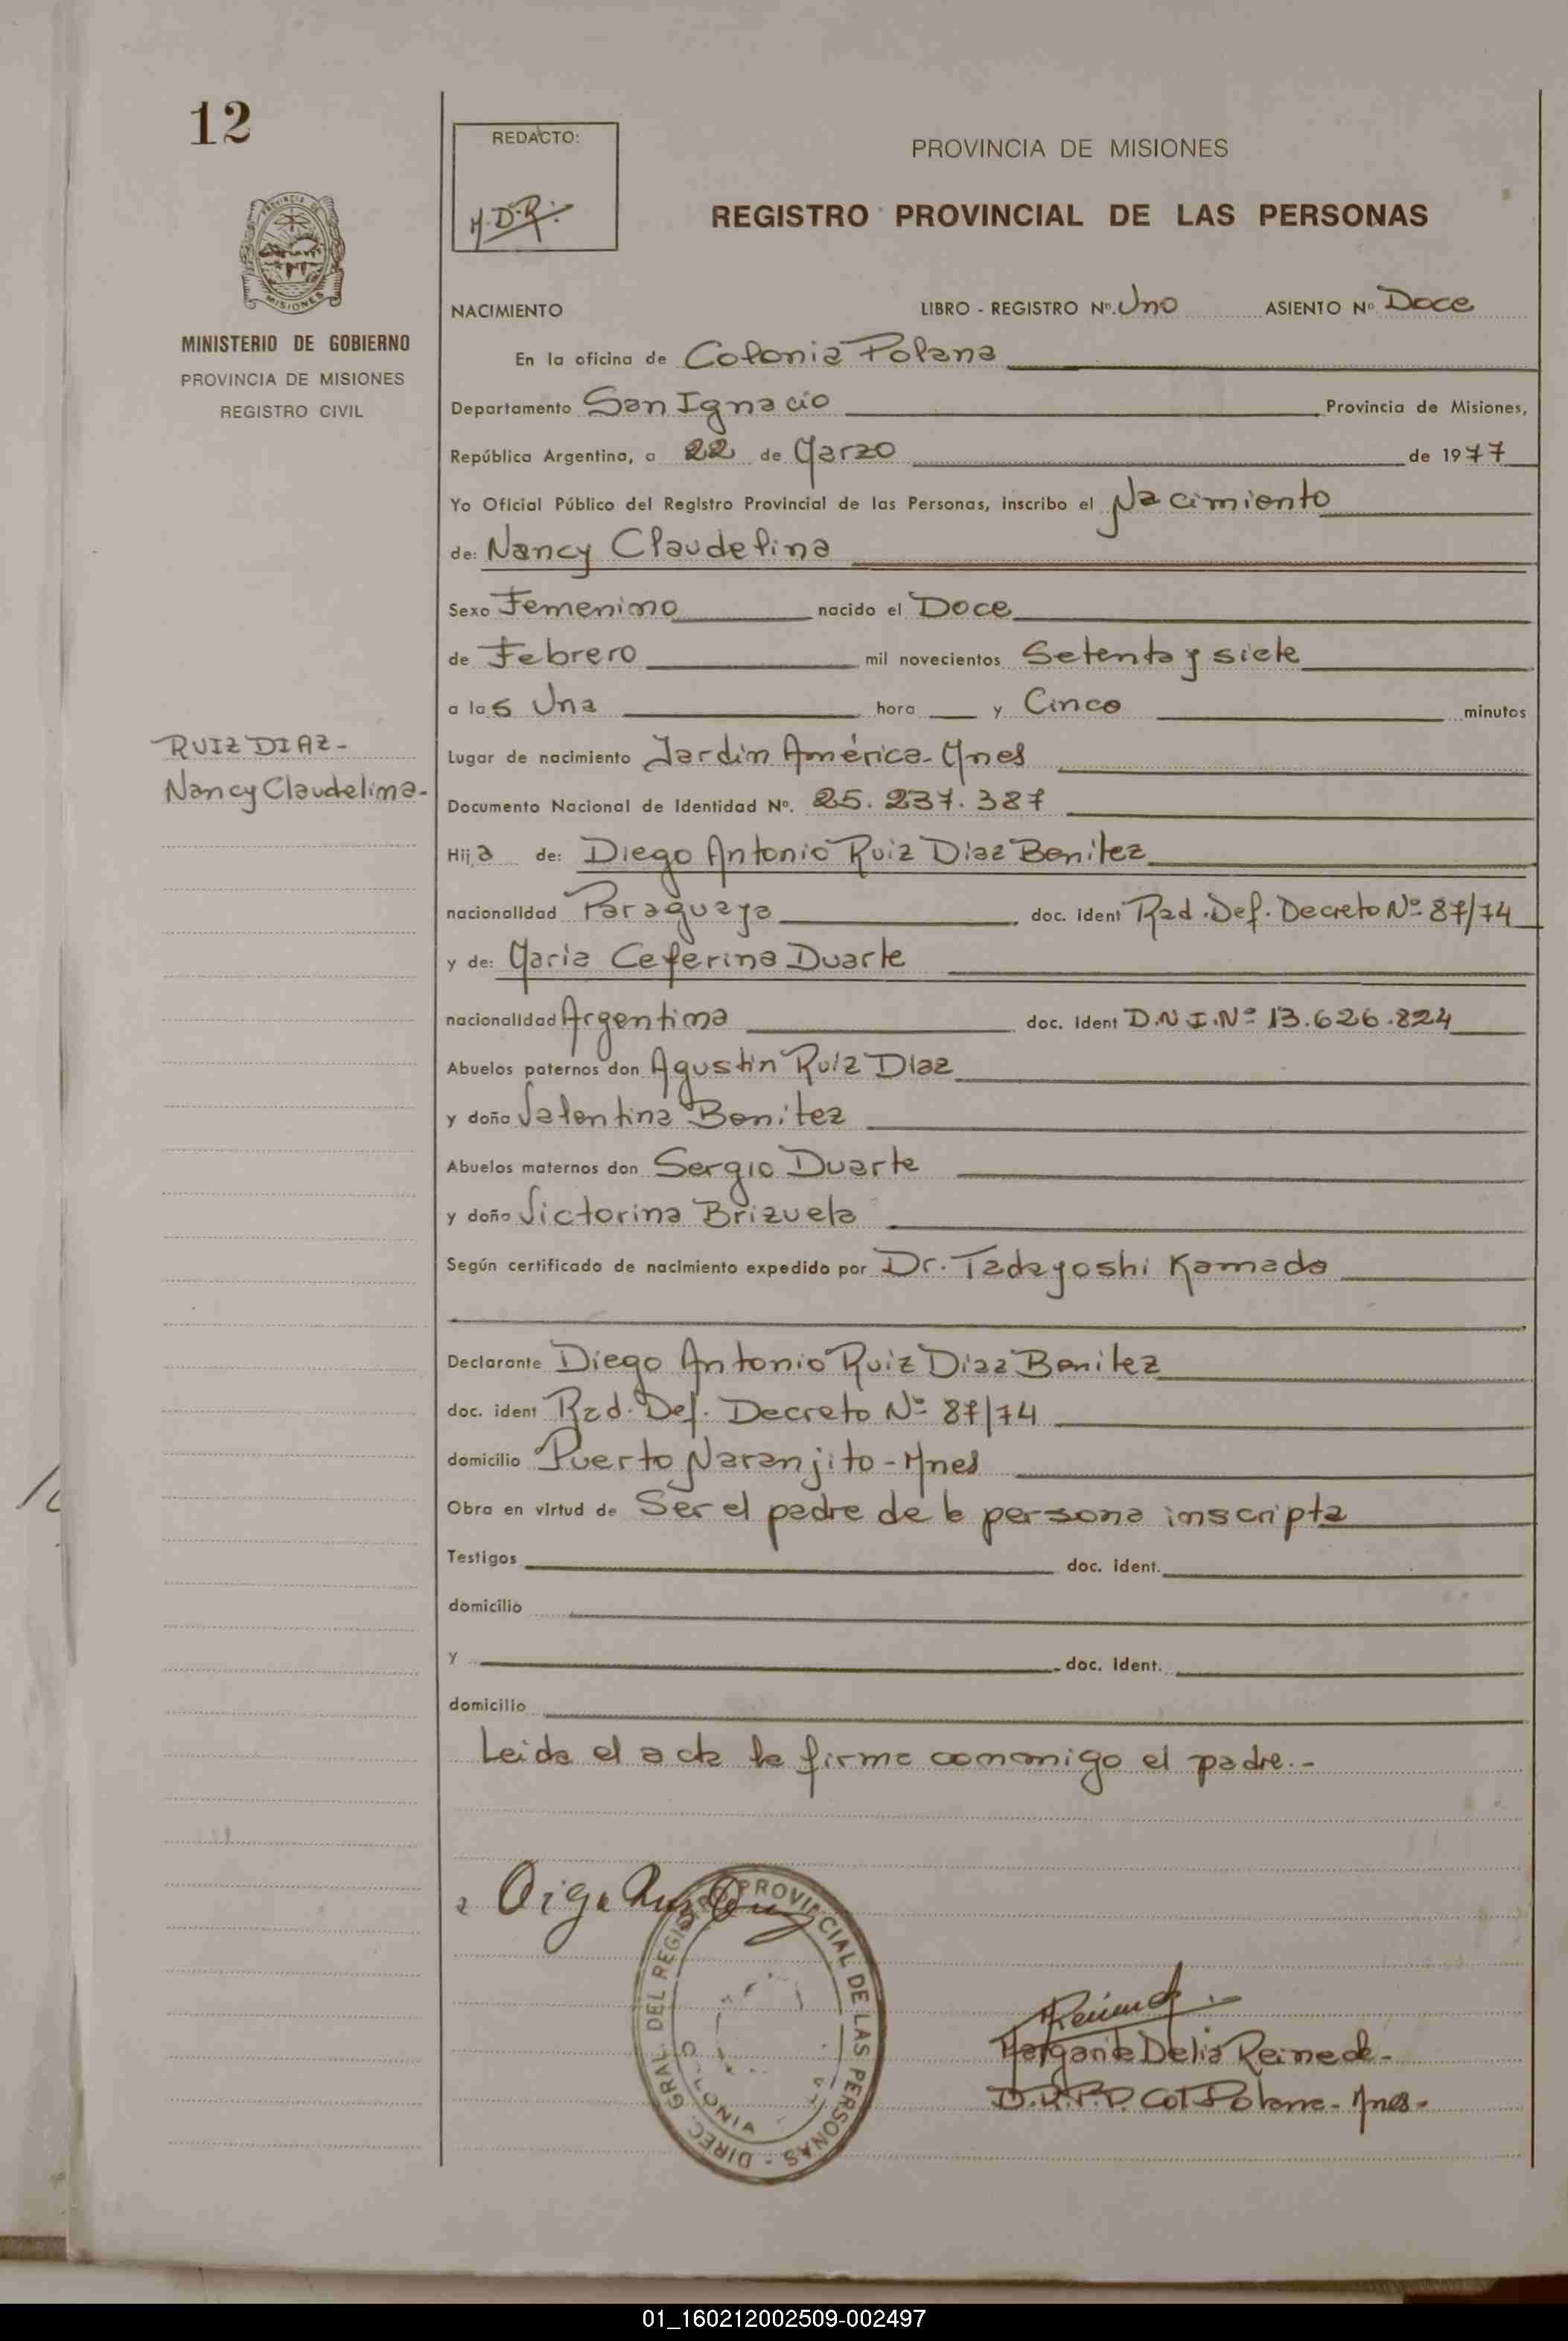 12
REDACTO:
M.D.R.
PROVINCIA DE MISIONES
REGISTRO PROVINCIAL DE LAS PERSONAS
PROVINCIA DE
MISIONES
MINISTERIO DE GOBIERNO
PROVINCIA DE MISIONES
REGISTRO CIVIL
NACIMIENTO LIBRO - REGISTRO Nº. Uno ASIENTO Nº Doce
En la oficina de Colonia Polana
Departamento San Ignacio Provincia de Misiones,
República Argentina, a 22 de Marzo de 1977
Yo Oficial Público del Registro Provincial de las Personas, inscribo el Nacimiento
de: Nancy Claudelina
Sexo Femenino nacido el Doce
de Febrero mil novecientos Setenta y siete
a las Una hora y Cinco minutos
RUIZ DIAZ-
Nancy Claudelina-
Lugar de nacimiento Jardín América-Mnes
Documento Nacional de Identidad Nº. 25.237.387
Hija de: Diego Antonio Ruiz Diaz Benitez
nacionalidad Paraguaya doc. ident Rad. Def. Decreto Nº 87/74
y de: Maria Ceferina Duarte
nacionalidad Argentina doc. ident D.N.I. Nº 13.626.824
Abuelos paternos don Agustin Ruiz Diaz
y doña Valentina Benitez
Abuelos maternos don Sergio Duarte
y doña Victorina Brizuela
Según certificado de nacimiento expedido por Dr. Tadayoshi Kamada
Declarante Diego Antonio Ruiz Diaz Benitez
doc. ident Rad. Def. Decreto Nº 87/74
domicilio Puerto Naranjito - Mnes
Obra en virtud de Ser el padre de la persona inscripta
Testigos doc. ident.
domicilio
y doc. ident.
domicilio
Leida el acta la firma conmigo el padre.-
DIREC. GRAL. DEL REGISTRO PROVINCIAL DE LAS PERSONAS -
COLONIA
Margarita Delia
Col. Polana - Mnes-
01_160212002509-002497